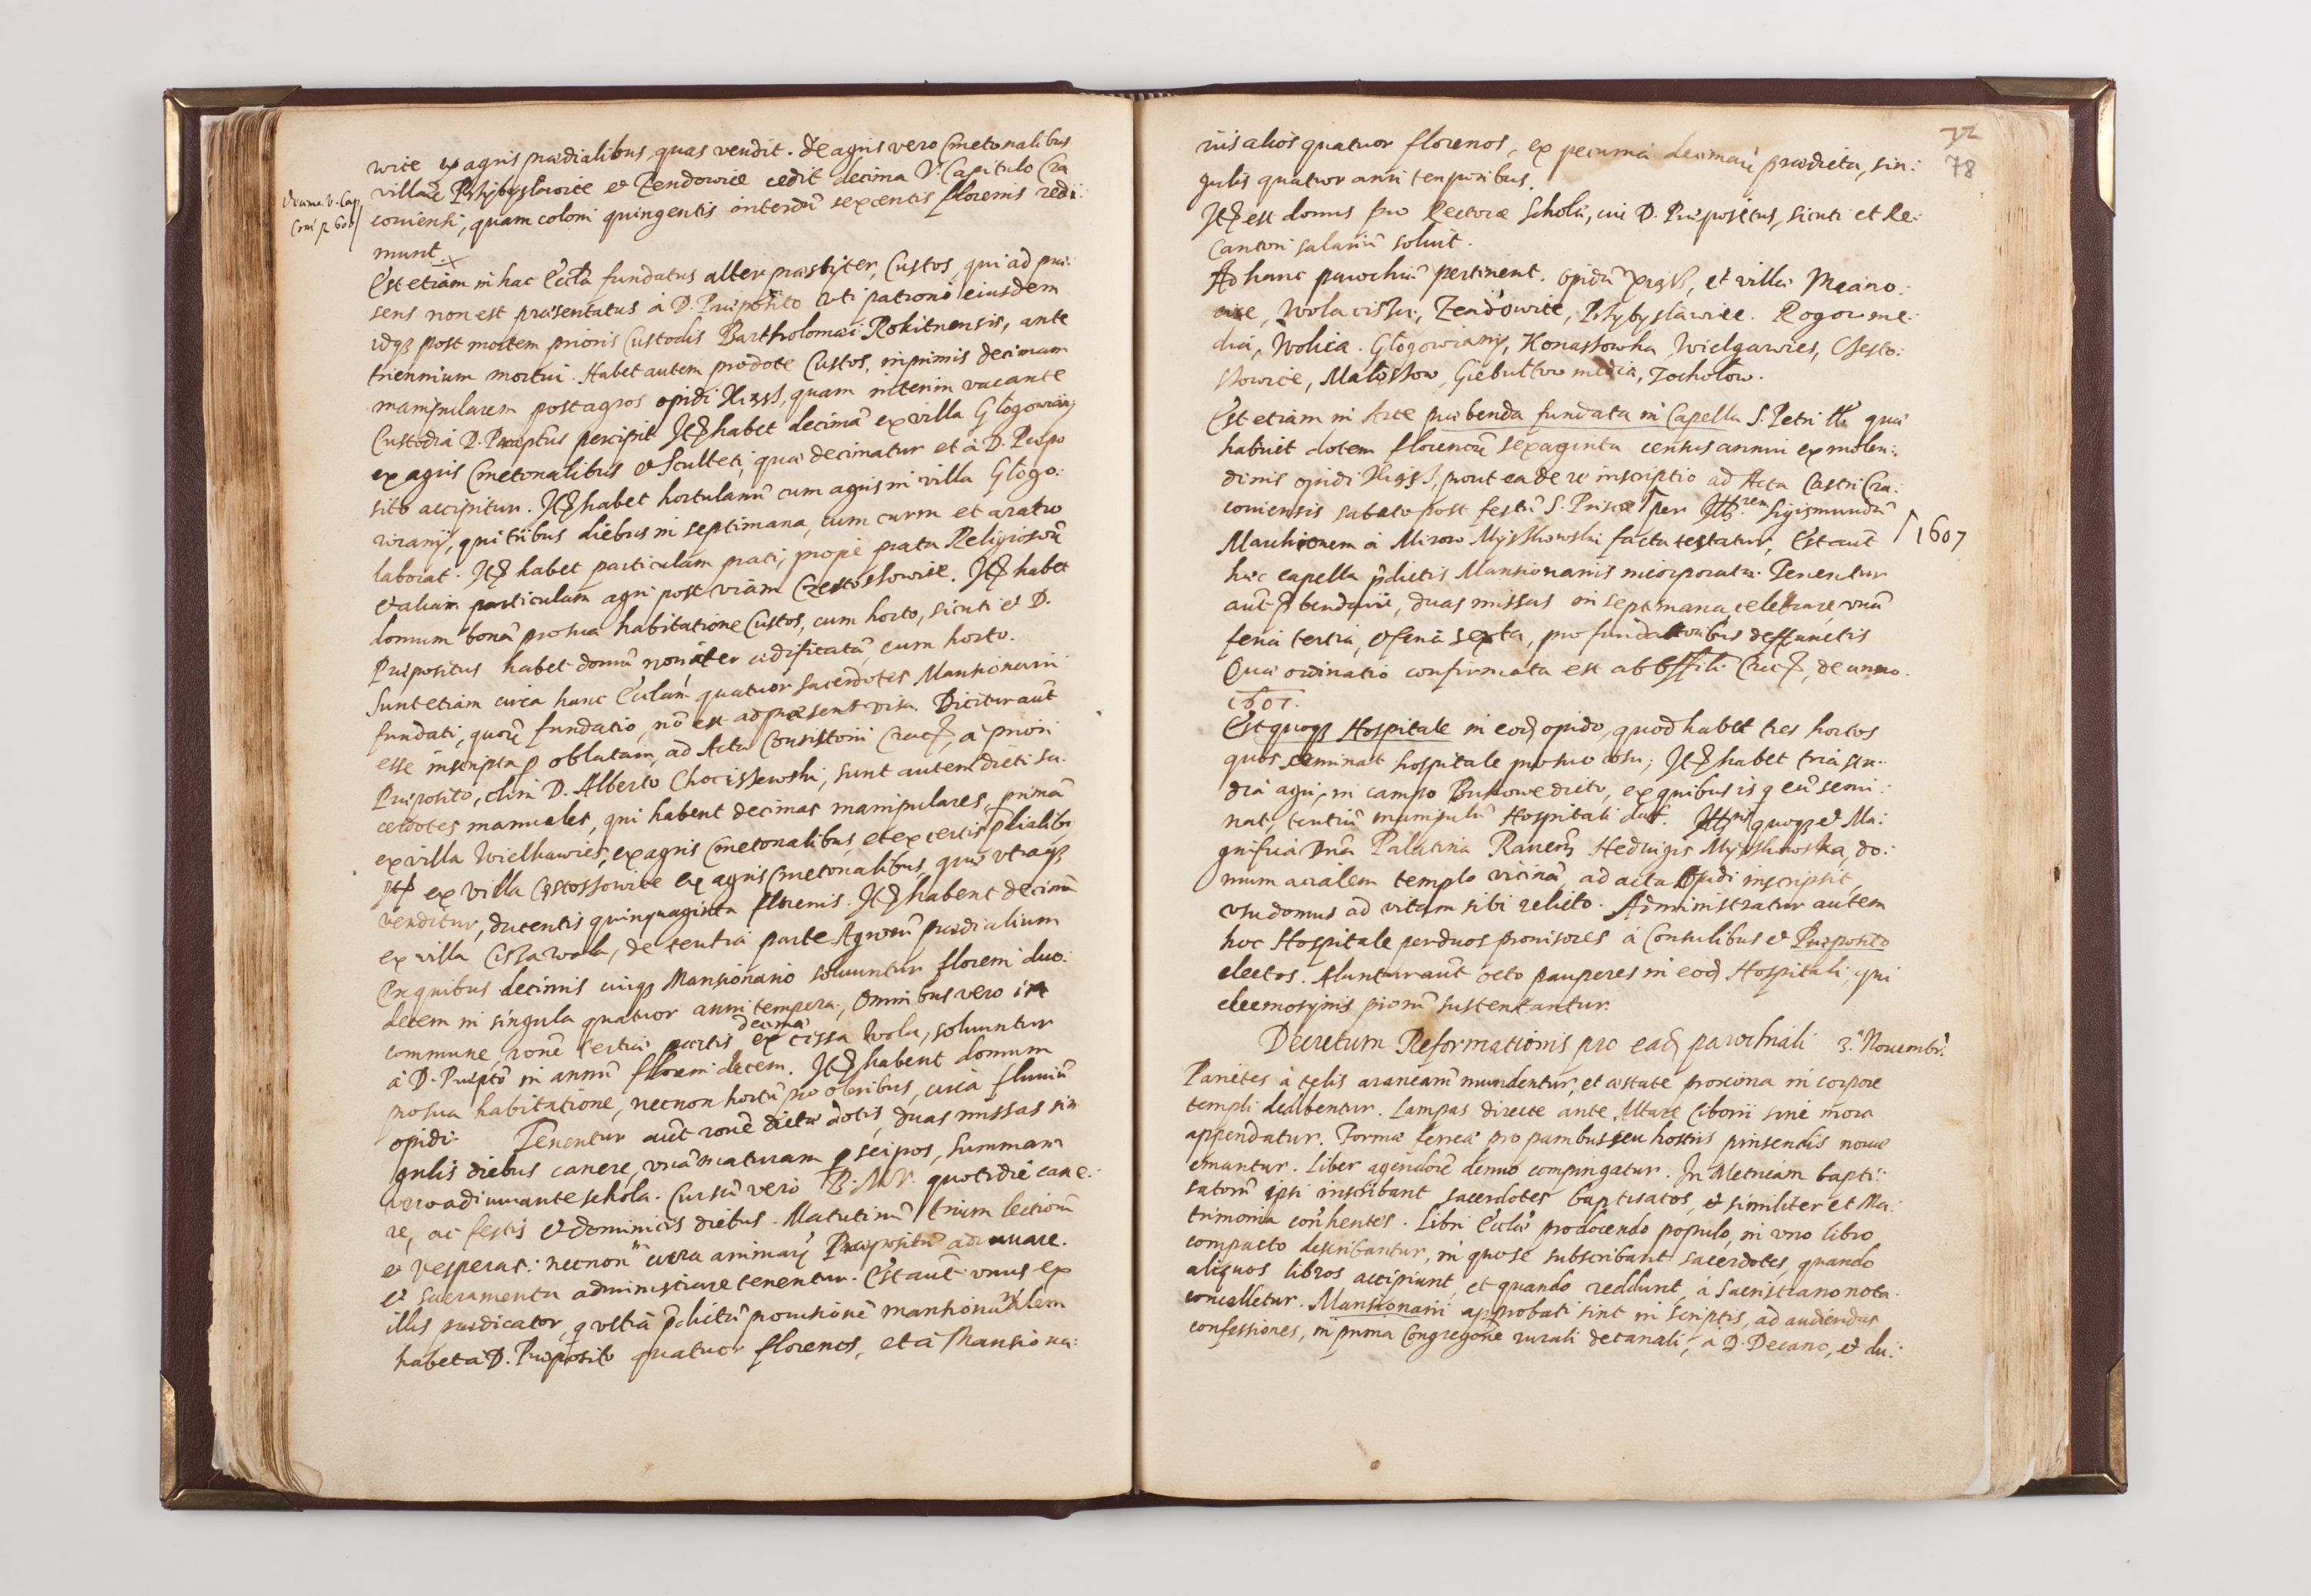 wice ex agris praedialibus, quas vendit. de agris vero Cmetonalibus
villarũ Przybysławice et Zendowice cedit decima V. Capitulo Cra
Decima V. Cap.
coviensi, quam coloni quingentis interdũ sexcentis florenis redi:
munt.
Est etiam in hac Eccľa fundatus alter praesbyter, Custos, qui ad prae:
sens non est praesentatus à D. Praeposito uti patrono eiusdem
idqȝ post mortem prioris Custodis Bartholomaei Rokitnensis, ante
triennium mortui. Habet autem pro dote Custos, inprimis decimam
manipularem post agros opidi Xiąss, quam interim vacante
Custodia D. Praeptus percipit. Itẽ habet decimã ex villa Głogowiany
ex agris Cmetonalibus et Sculteti, quae decimatur et à D. Praepo
sito accipitur. Itẽ habet hortulanũ cum agris in villa Głogo:
wiany, qui tribus diebus in septimana, cum curru et aratro
laborat. Itẽ habet particulam prati, propè prata Religiosorũ
et aliam particulam agri post viam Czestoszowice. Itẽ habet
domum bonã pro sua habitatione Custos, cum horto, sicuti et D.
Praepositus habet domũ noviter aedificatã, cum horto.
Sunt etiam circa hanc Eccľam quatuor sacerdotes Mansionarii
fundati, quorũ fundatio, nõ est ad praesens visa. Dicitur aũt
esse inscripta p oblatam, ad Acta Consistorii Crac, à priori
Praeposito, olim D. Alberto Chociszewski, sunt autem dicti sa:
cerdotes manuales, qui habent decimas manipulares, primã
ex villa Wielhawies, ex agris Cmetonalibus, et ex certis p̃dialibꝰ
Itẽ ex villa Cząstossowice ex agris Cmetonalibus, quae utraqȝ
venditur, ducentis quinquaginta florenis. Itẽ habent decimã
ex villa Cissa wola, de tertia parte Agrorũ praedialium
Ex quibus decimis cuiqȝ Mansionario solvuntur floreni duo:
decem in singula quatuor anni tempora, omnibus vero in
decimae
commune, ronẽ tertiae partis ex cissa Wola, solvuntur
à D. Praepto in annũ floreni decem. Itẽ habent domum
pro sua habitatione, necnon hortũ pro oleribus, circa fluviũ
opidi. Tenentur aũt ronẽ dictae dotis, duas missas sin
gulis diebus canere, unã maturam p seipos, summam
vero adiuvante schola. Cursũ vero B. M. V. quotidie cane:
re, ac festis et dominicis diebus. Matutinũ trium lectionũ
et vesperas: necnon in cura animarũ Praepositũ adiuvare.
et sacramenta administrare tenentur. Est aũt unus ex
illis praedicator, q ultra p̃dictã provisionẽ mansionarialem
habet à D. Praeposito quatuor florenos, et à Mansiona:
72
78
riis alios quatuor florenos, ex pecunia decimarũ praedicta, sin:
gulis quatuor anni temporibus.
Itẽ est domus pro Rectore Scholae, cui D. Praepositus, sicuti et Re:
Cantori salariũ solvit.
Ad hanc parochiã pertinent. opidũ Xiąss, et villae Moiano:
wice, Wola cissa, Zendowice, Przybysławice. Rogow me:
dia, Wolica. Głogowiany, Konassowka, Wielgawies, Czesto:
szowice, Małoszow, Giebułtow media, Tochołow.
Est etiam in Arce praebenda fundata in Capella S. Petri quae
habuit dotem florenorũ sexaginta census annui ex molen:
dinis opidi Xiąss, prout ea de re inscriptio ad Acta Castri Cra:
coviensis sabato post festũ S. Priscae per Illrem Sigismundũ
1607
Marchionem à Mirow Myszkowski facta testatur, Est aũt
haec capella p̃dictis Mansionariis incorporata. Tenentur
aũt p̃bendarii, duas missas in septimana celebrare, unã
feria tertia, et feria sexta, pro fundatoribus deffunctis
Quae ordinatio confirmata est ab Offili Crac, de anno.
1607.
Est quoqȝ Hospitale in eod opido, quod habet tres hortos
quos seminat hospitale pro suo usu, Itẽ habet tria sta:
dia agri, in campo Bukowe dicto, ex quibus is q eũ semi:
nat, tertiũ manipulũ Hospitali dat. Illris quoqȝ et Ma:
gnifica Dña Palatina Raven Hedvigis Myszkowska, do:
mum arealem templo vicinã, ad acta Opidi inscripsit,
usu domus ad vitam sibi relicto. Administratur autem
hoc Hospitale per duos provisores à Consulibus et Praeposito
electos. Aluntur aũt octo pauperes in eod Hospitali, qui
eleemosynis piorũ sustentantur.
Decretum Reformationis pro ead parochiali 3. Novembr.
Parietes à telis aranearũ mundentur, et aestate proxima in corpore
templi dealbentur. Lampas directe ante Altare Ciborii sine mora
appendatur. Forma ferrea pro panibus seu hostiis pinsendis nova
emantur. Liber agendorũ denuo compingatur. In Metricam bapti:
satorũ ipsi inscribant sacerdotes baptisatos, et similiter et Ma:
trimonia cont̃hentes. Libri Eccľae pro docendo populo, in uno libro
compacto describantur, in quo se subscribant sacerdotes, quando
aliquos libros accipiunt, et quando reddunt, à Sacristiano nota
concelletur. Mansionarii approbati sint in scriptis, ad audiendas
confessiones, in prima Congregõne rurali decanali, à D. Decano, et du: